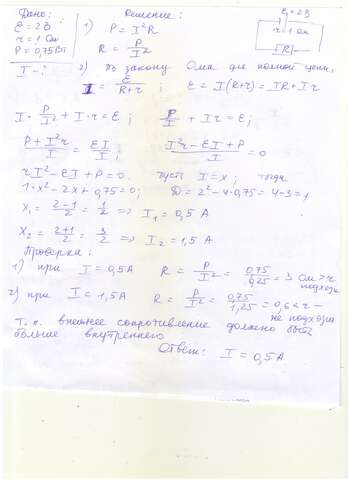 Дано: Решение:
ε = 2В 1) P = I²R
r = 1 Ом R = P/I²
P = 0,75 Вт
I - ? 2) По закону Ома для полной цепи,
I = ε/(R+r); ε = I(R+r) = IR + Ir
ε = 2В
r = 1 Ом
R
I · P/I² + I·r = ε; P/I + Ir = ε;
(P + I²r)/I = εI/I; (I²r - εI + P)/I = 0
rI² - εI + P = 0. Пусть I = x; тогда
1·x² - 2x + 0,75 = 0; D = 2² - 4·0,75 = 4-3 = 1
X₁ = (2-1)/2 = 1/2 => I₁ = 0,5 A
X₂ = (2+1)/2 = 3/2 => I₂ = 1,5 A
Проверка:
1) при I = 0,5 A R = P/I² = 0,75/0,25 = 3 Ом > r
подходи
2) при I = 1,5 A R = P/I² = 0,75/1,25 = 0,6 < r –
не подходи
Т.к. внешнее сопротивление должно быть
больше внутреннего
Ответ: I = 0,5 A